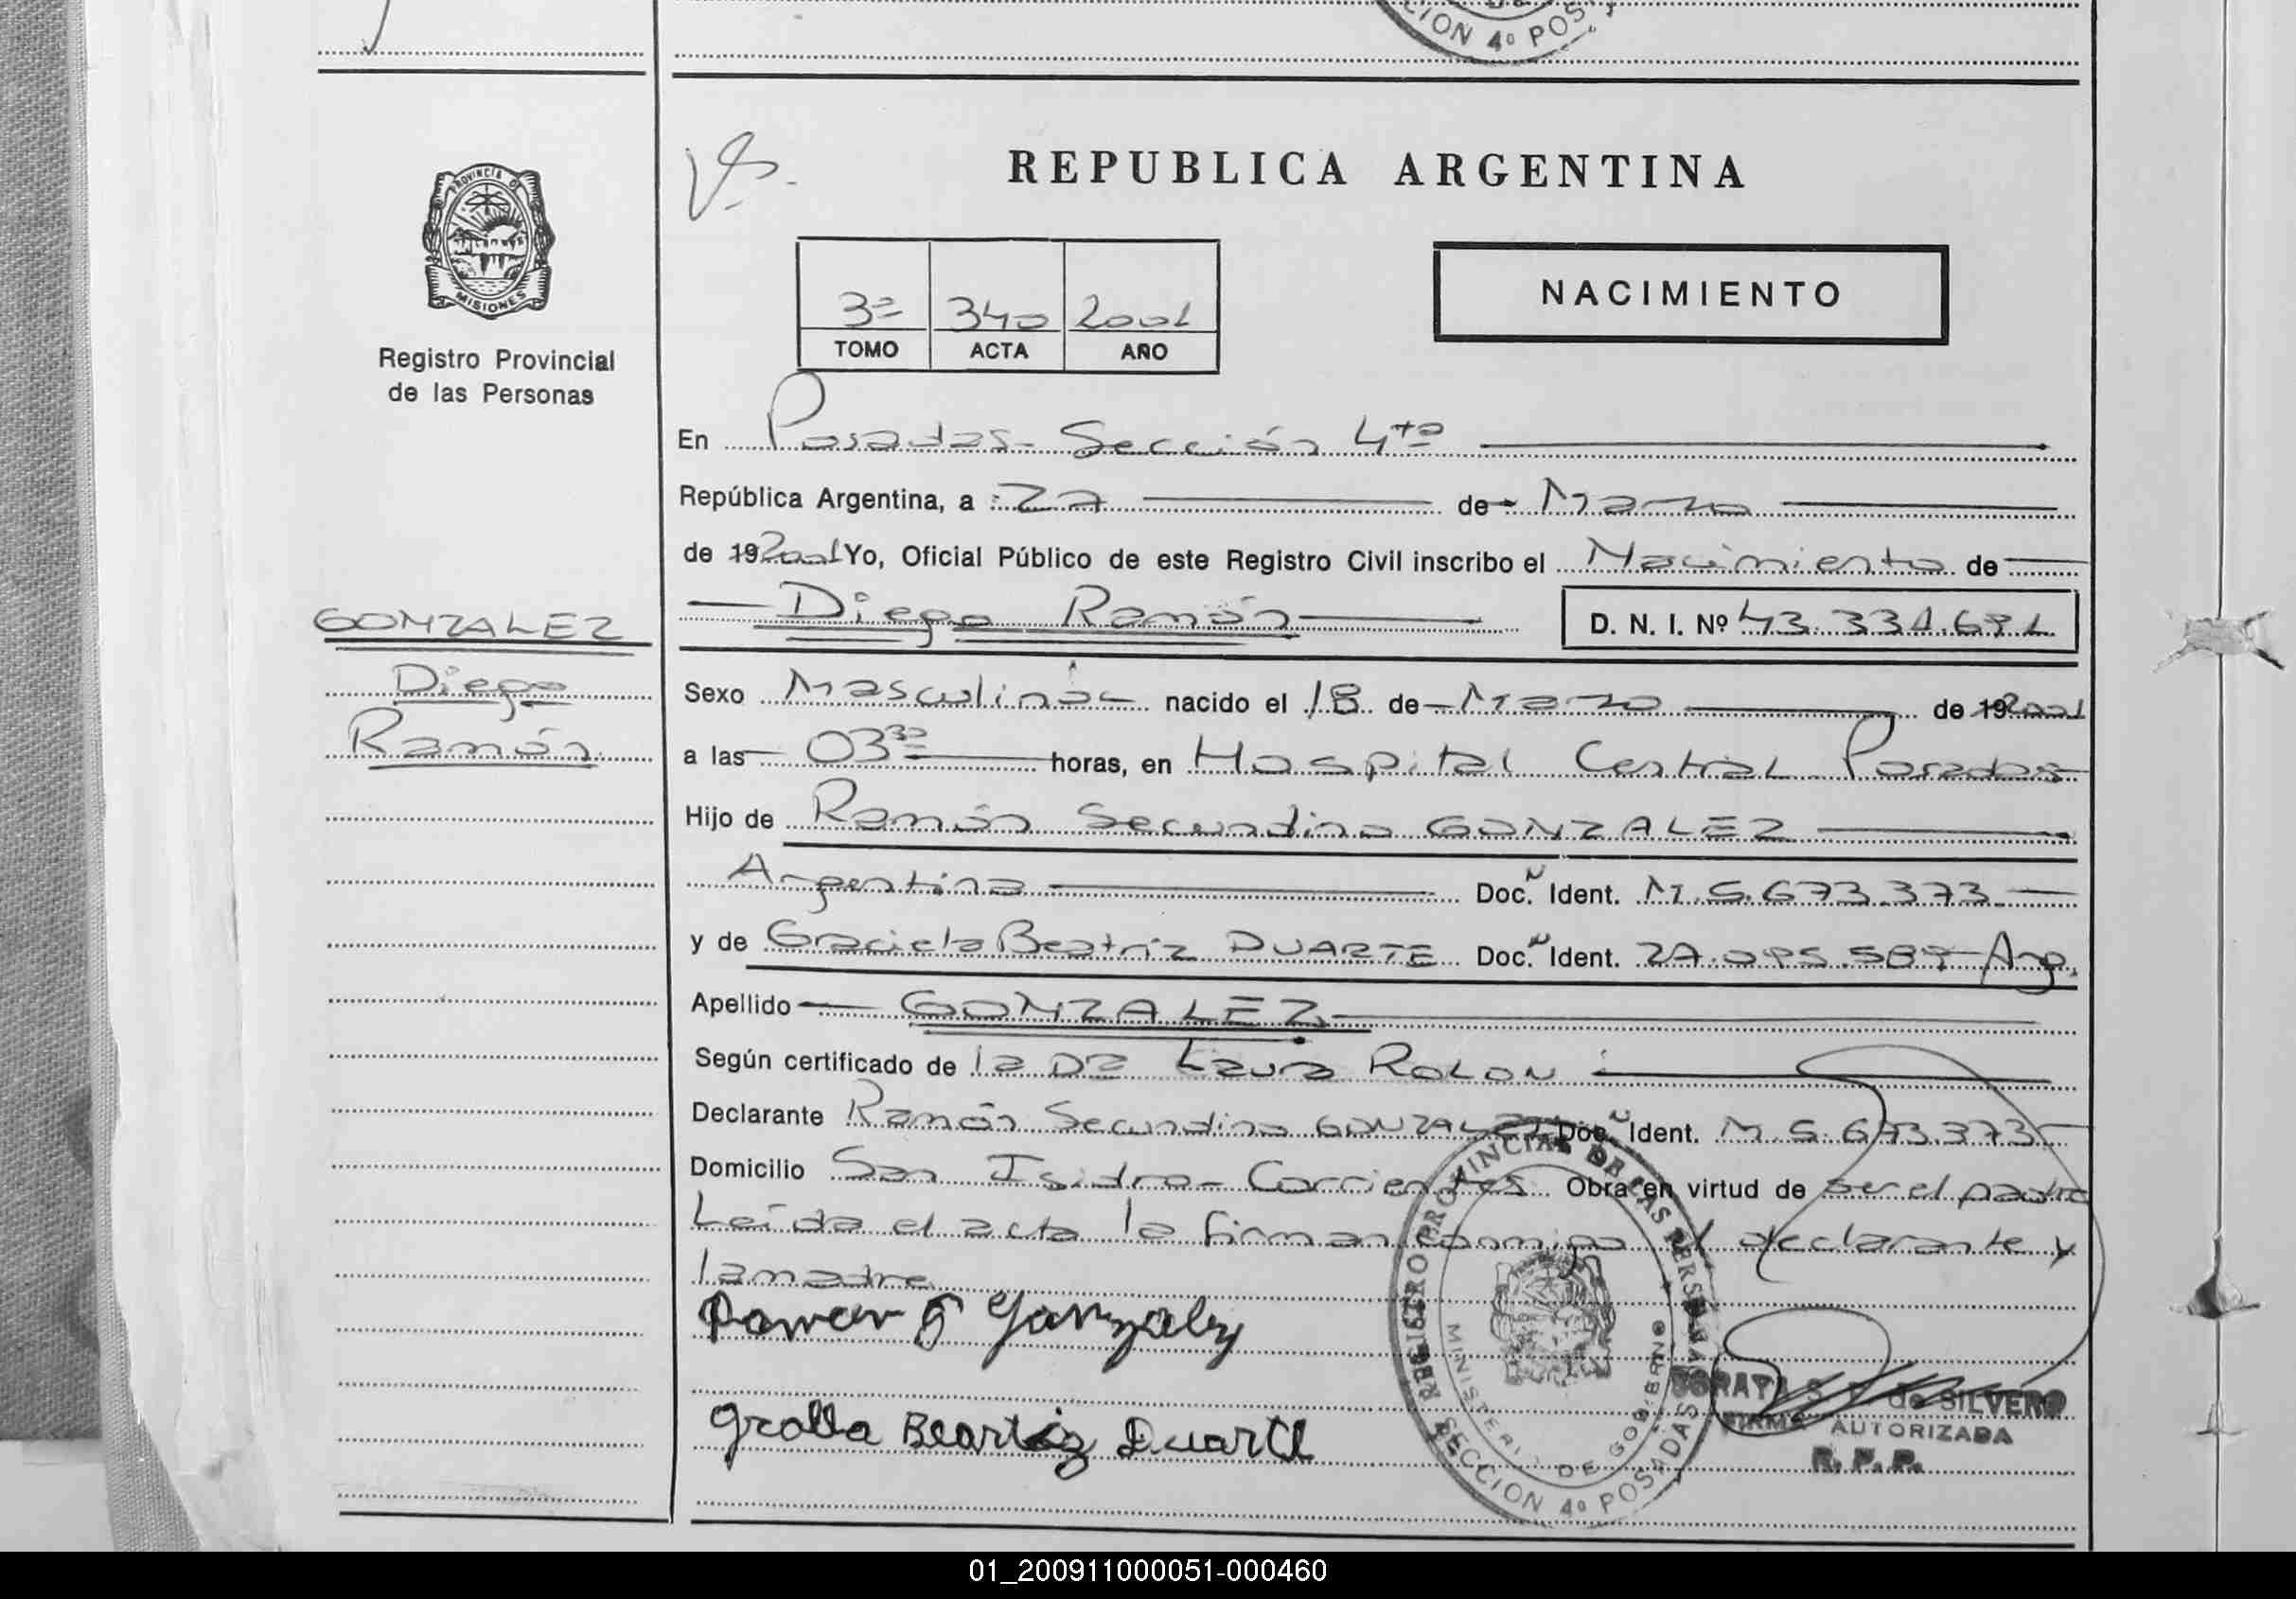 CION 4º POS
PROVINCIA DE
MISIONES
Registro Provincial
de las Personas
REPUBLICA ARGENTINA
3º 340 2001
TOMO ACTA AÑO
NACIMIENTO
En Posadas- Sección 4ta
República Argentina, a 27 de Marzo
de 19 2001 Yo, Oficial Público de este Registro Civil inscribo el Nacimiento de
Diego Ramón D. N. I. Nº
GONZALEZ
Diego
Ramón
Sexo Masculino nacido el 18 de Marzo de 19 2001
a las 03 30 horas, en Hospital Central Posadas
Hijo de Ramón Secundino GONZALEZ
Argentina Doc. Ident. M. 5.673.373
y de Graciela Beatriz DUARTE Doc. Ident. Arg.
Apellido GONZALEZ
Según certificado de la Dra Laura ROLON
Declarante Ramón Secundino GONZALEZ Doc. Ident. M. 5.673.373
Domicilio San Isidro- Corrientes Obra en virtud de ser el padre
Leída el acta la firman conmigo el declarante y
la madre
Ramon S Gonzalez
Beartiz Duarte
REGISTRO PROVINCIAL DE LAS PERSONAS
MINISTERIO DE GOBIERNO
SECCION 4º POSADAS
de SILVERO
FIRMA AUTORIZADA
R. P. P.
01_200911000051-000460